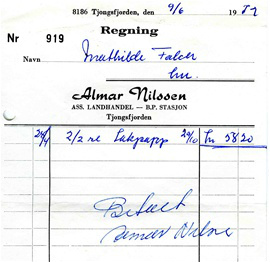 8186 Tjongsfjorden, den 9/6 19 87
Regning
Nr 919
Navn Mathilde Falch
Almar Nilssen
ASS. LANDHANDEL — B.P. STASJON
Tjongsfjorden
2/2 re Takpapp 29/10 kr 58 20
Betalt
Almar Nilssen